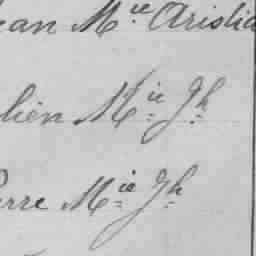 ean M.ie Aristid
lien M.ie J.h
erre M.ie J.h